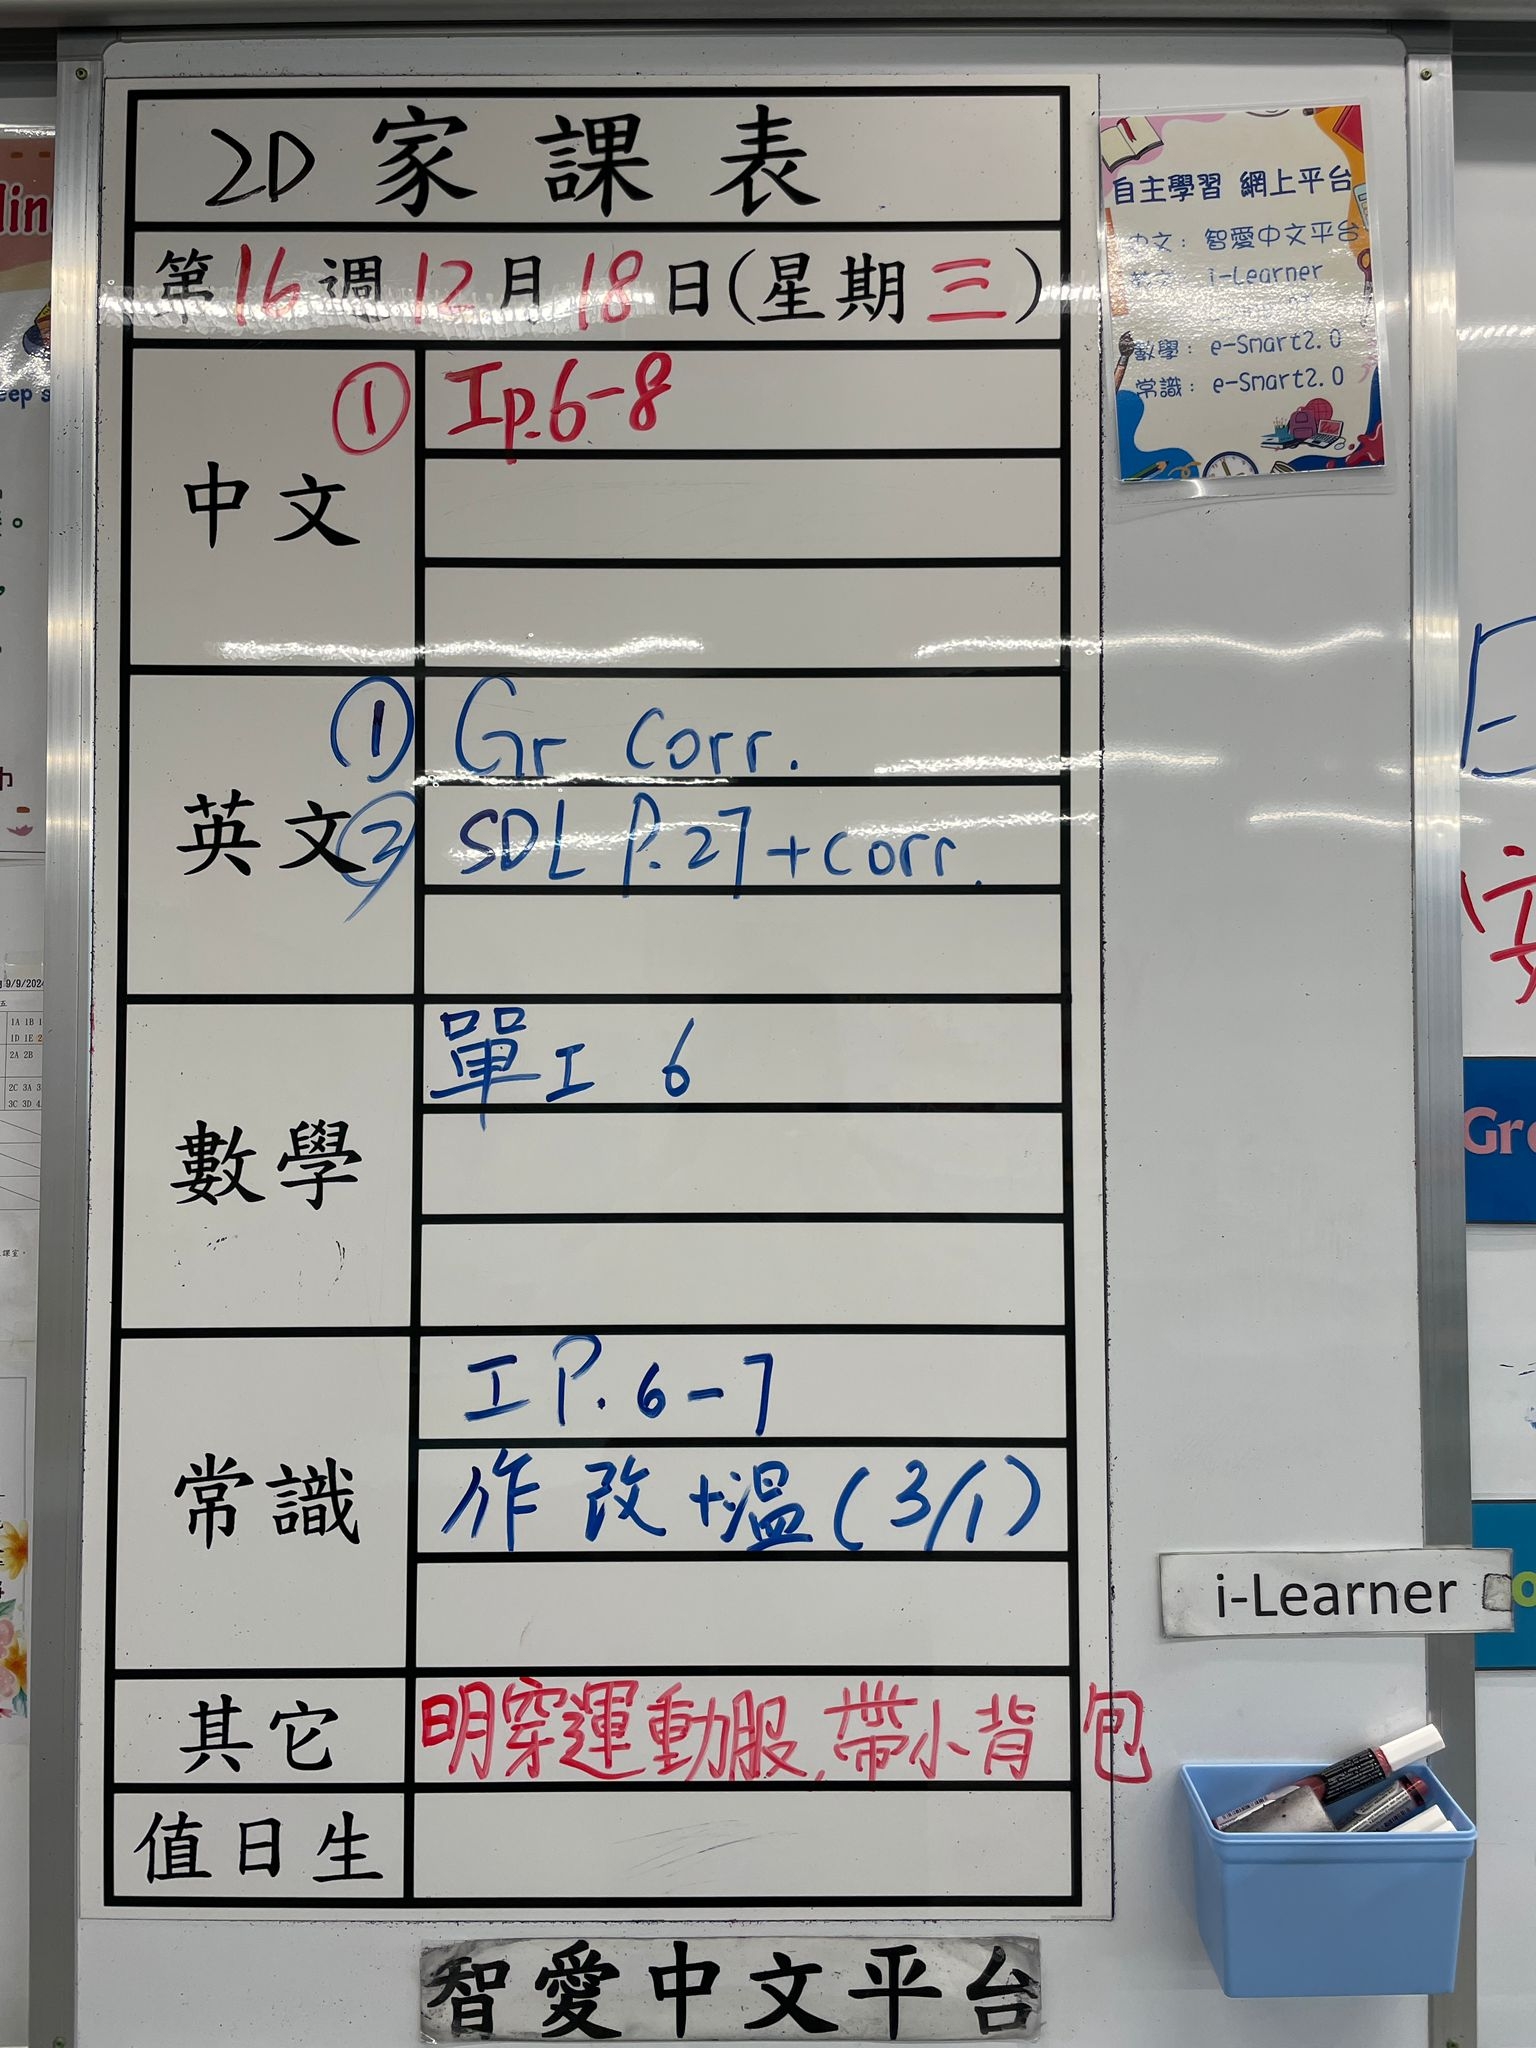 2D 家課表
第16週12月18日(星期三)
中文
① 工p.6-8
英文
① Gr corr.
② SDL P.27+corr.
數學
單工 6
常識
工P.6-7
作改+溫(3/1)
其它
明穿運動服,帶小背包
值日生
智愛中文平台
自主學習 網上平台
中文：智愛中文平台
英文：i-Learner
數學：e-Smart2.0
常識：e-Smart2.0
i-Learner
9/9/2024
1A 1B 1
1D 1E 2
2A 2B
2C 3A 3
3C 3D 4
Gr